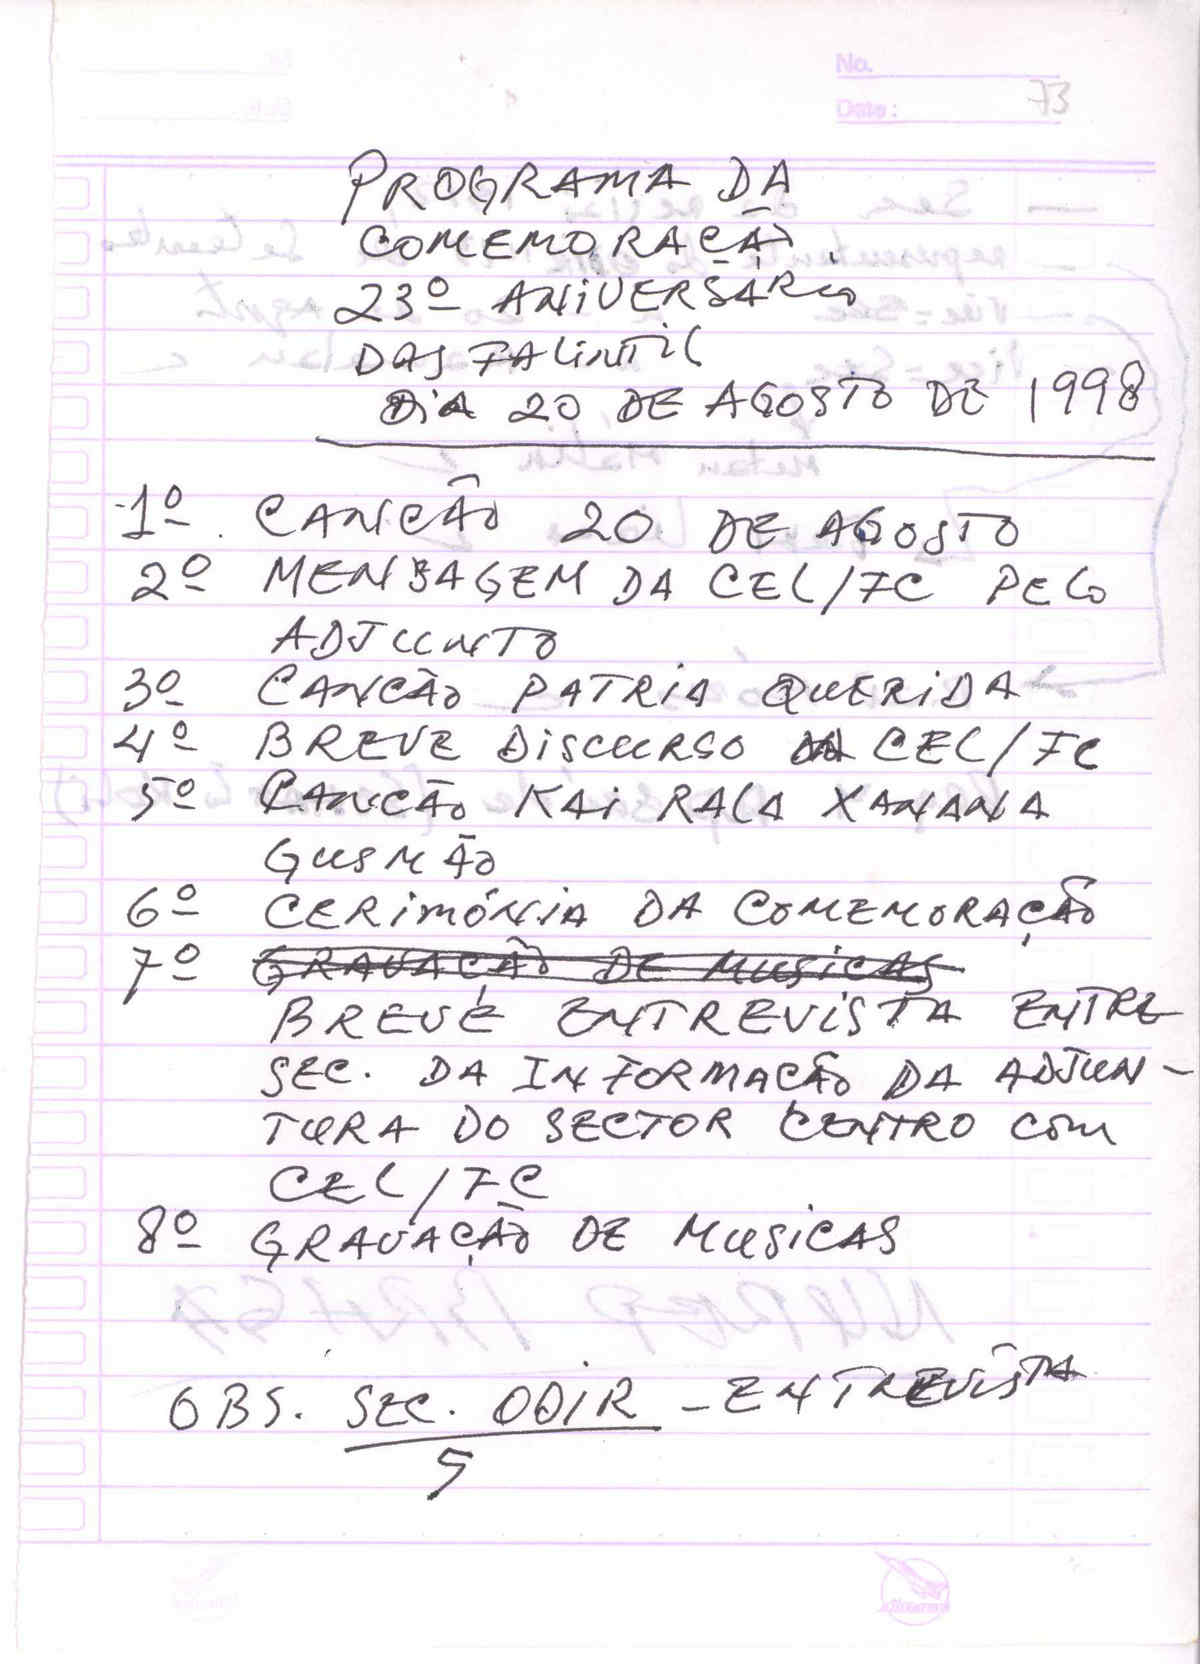 No.
Date: 73
PROGRAMA DA
COMEMORAÇÃO
23º ANIVERSÁRIO
DAS FALINTIL
DIA 20 DE AGOSTO DE 1998
1º CANCÃO 20 DE AGOSTO
2º MENSAGEM DA CEL/FC PELO
ADJUNTO
3º CANCÃO PATRIA QUERIDA
4º BREVE DISCURSO CEL/FC
5º CANCÃO KAI RALA XANANA
GUSMÃO
6º CERIMÓNIA DA COMEMORAÇÃO
7º GRAVAÇÃO DE MUSICAS
BREVE ENTREVISTA ENTRE
SEC. DA INFORMAÇÃO DA ADJUN-
TURA DO SECTOR CENTRO COM
CEL/FC
8º GRAVAÇÃO DE MUSICAS
OBS. SEC. ODIR - ENTREVISTA
5